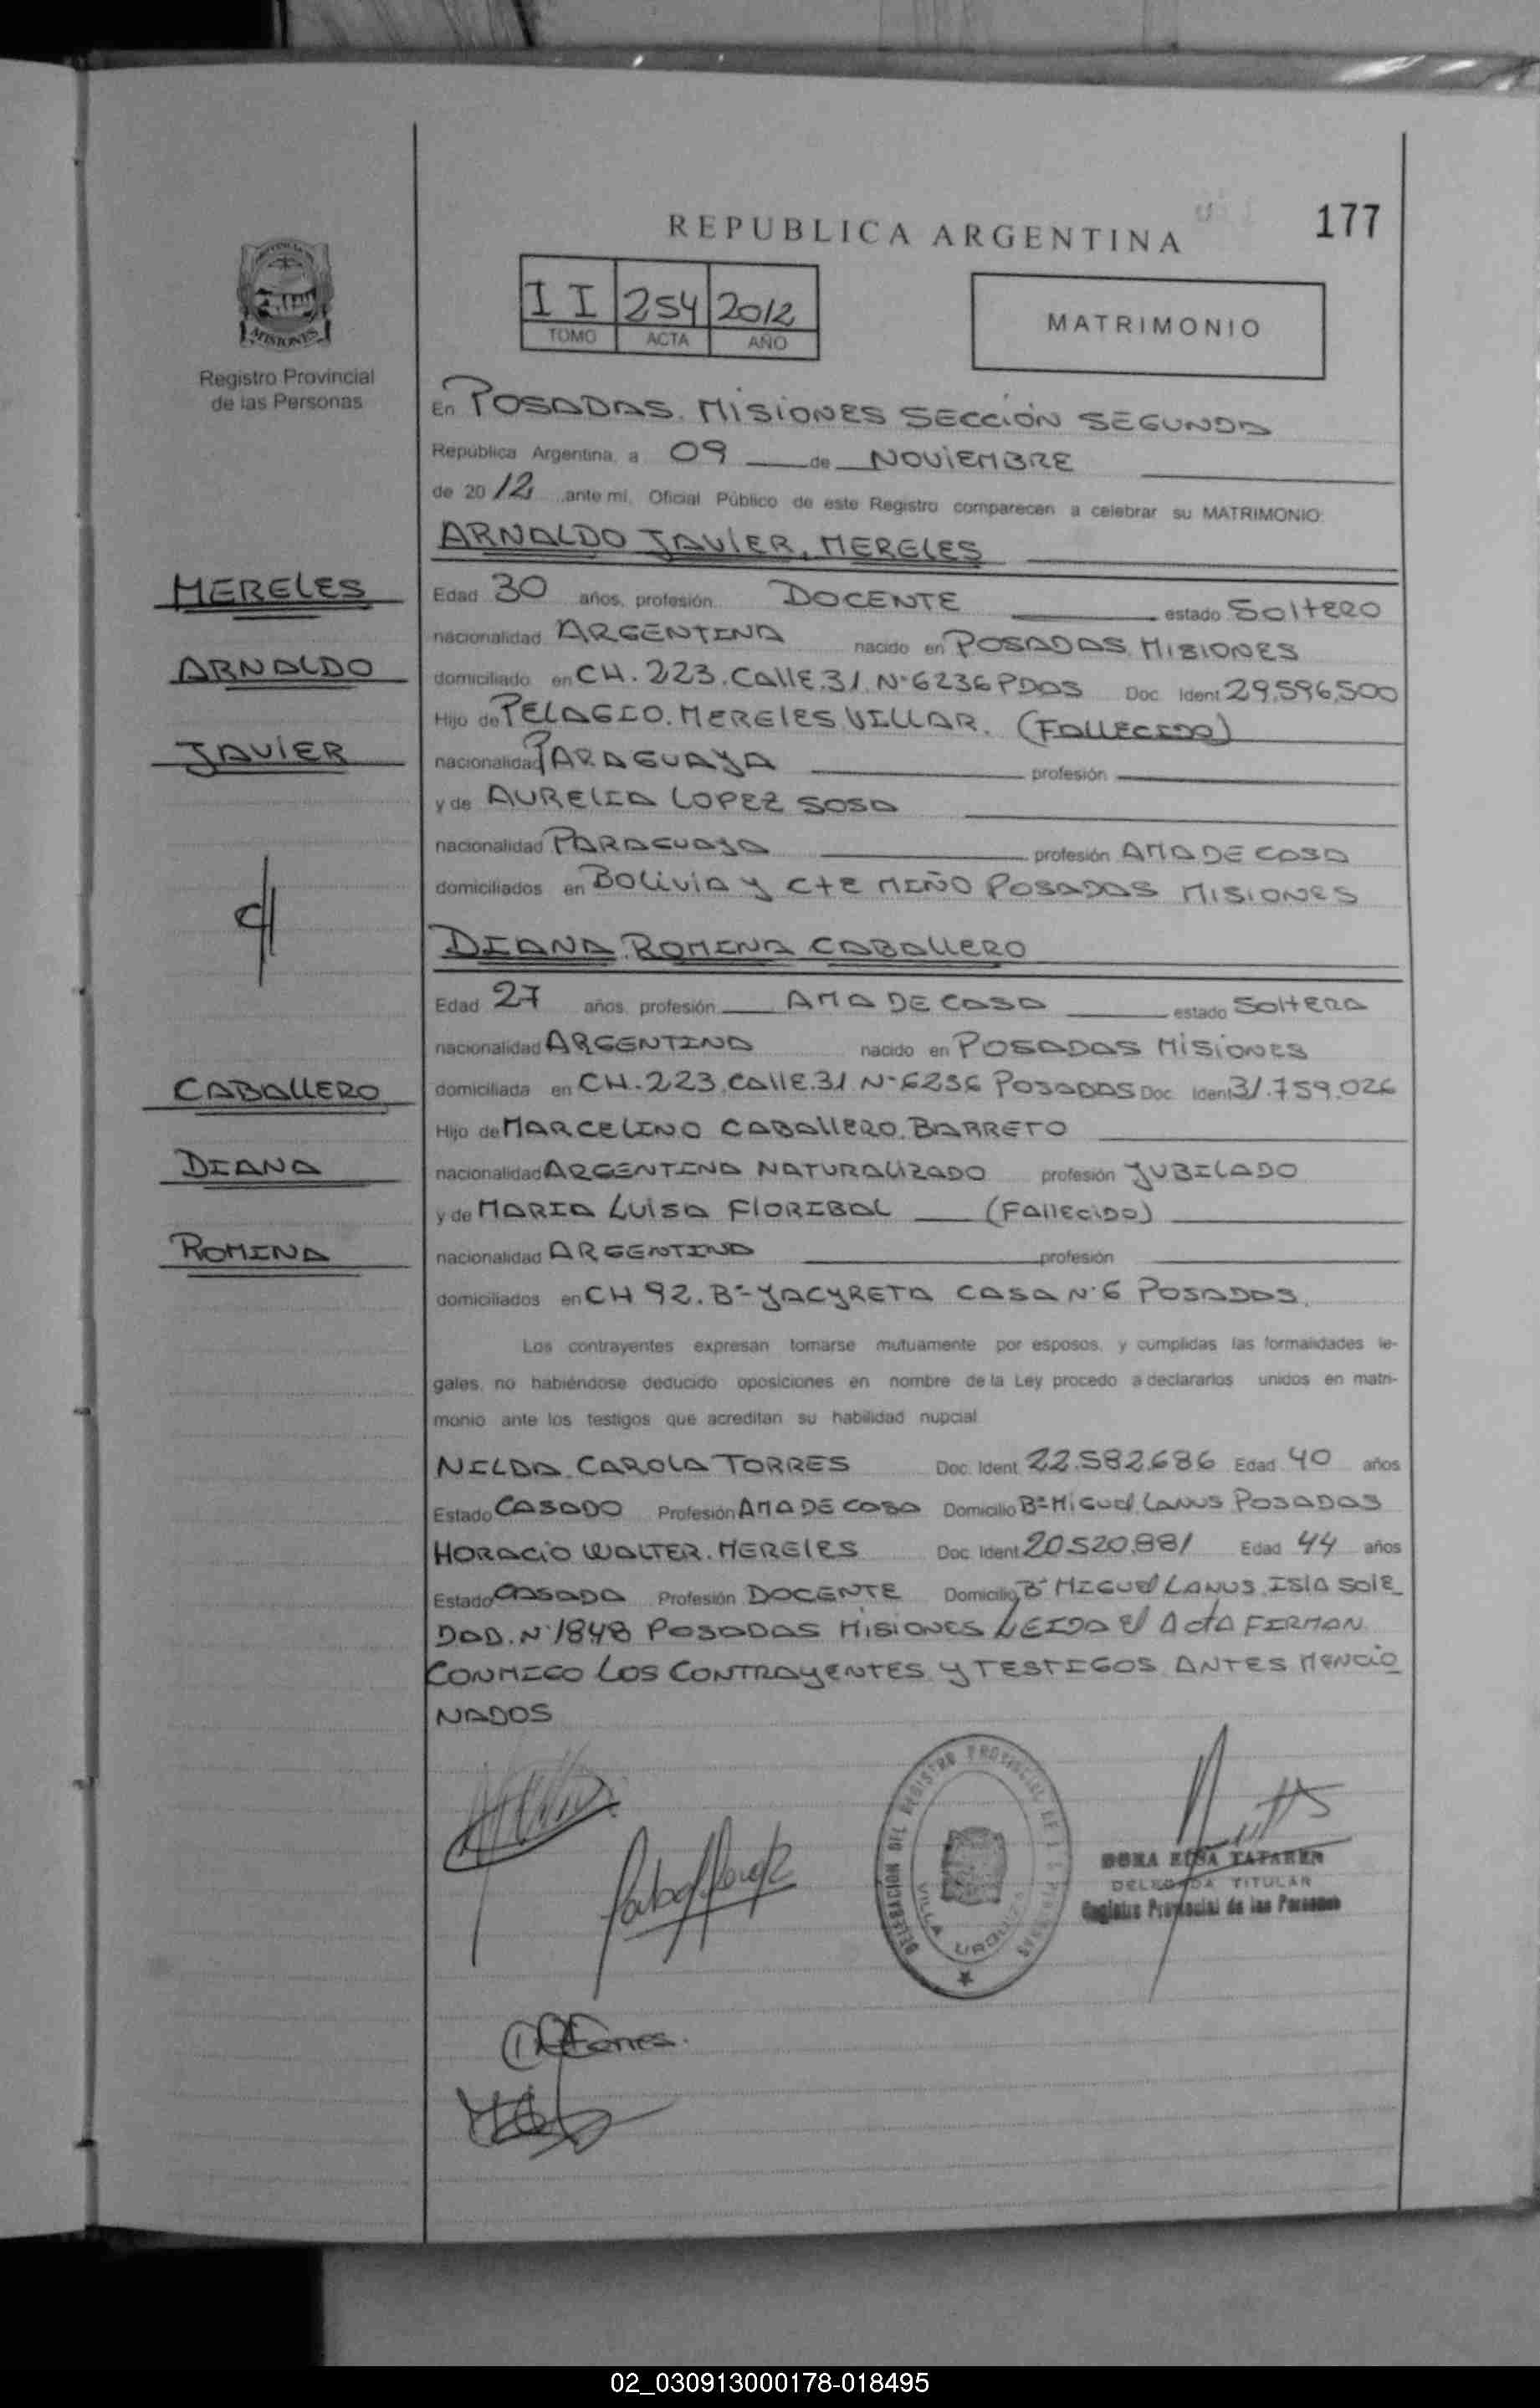 REPUBLICA ARGENTINA
177
II 254 2012
TOMO ACTA AÑO
MATRIMONIO
MISIONES
Registro Provincial
de las Personas
En POSADAS. MISIONES SECCIÓN SEGUNDA
República Argentina, a 09 de NOVIEMBRE
de 2012 ante mi, Oficial Público de este Registro comparecen a celebrar su MATRIMONIO:
ARNALDO JAVIER, MERELES
MERELES
ARNALDO
JAVIER
Edad 30 años, profesión DOCENTE estado SOLTERO
nacionalidad ARGENTINA nacido en POSADAS MISIONES
domiciliado en CH. 223. CALLE.31. Nº6236 PDAS Doc. Ident 29.596.500
Hijo de PELAGIO. MERELES VILLAR. (FALLECIDO)
nacionalidad PARAGUAYA profesión
y de AURELIA LOPEZ SOSA
nacionalidad PARAGUAYA profesión AMA DE CASA
domiciliados en BOLIVIA y CTE MIÑO POSADAS MISIONES
DIANA ROMINA CABALLERO
Edad 27 años, profesión AMA DE CASA estado SOLTERA
nacionalidad ARGENTINA nacido en POSADAS MISIONES
CABALLERO
DIANA
ROMINA
domiciliada en CH. 223. CALLE.31 Nº 6236 POSADAS Doc. Ident 31.759.026
Hijo de MARCELINO CABALLERO. BARRETO
nacionalidad ARGENTINA NATURALIZADO profesión JUBILADO
y de MARIA LUISA FLORIBAL (FALLECIDO)
nacionalidad ARGENTINA profesión
domiciliados en CH 92. Bº YACYRETA CASA Nº 6 POSADAS.
Los contrayentes expresan tomarse mutuamente por esposos, y cumplidas las formalidades le-
gales, no habiéndose deducido oposiciones en nombre de la Ley procedo a declararlos unidos en matri-
monio ante los testigos que acreditan su habilidad nupcial
NILDA. CAROLA TORRES Doc. Ident. 22.582.686 Edad 40 años
Estado CASADO Profesión AMA DE CASA Domicilio Bº MIGUEL LANUS POSADAS
HORACIO WALTER. MERELES Doc. Ident. 20.520.881 Edad 44 años
Estado CASADA Profesión DOCENTE Domicilio Bº MIGUEL LANUS. ISLA SOLE_
DAD. Nº 1848 POSADAS MISIONES LEIDA El ACTA FIRMAN
CONMIGO LOS CONTRAYENTES y TESTIGOS ANTES MENCIO_
NADOS
DELEGACION DEL REGISTRO PROVINCIAL DE LAS PERSONAS
VILLA URQUIZA
DELEGADA TITULAR
Registro Provincial de las Personas
02_030913000178-018495